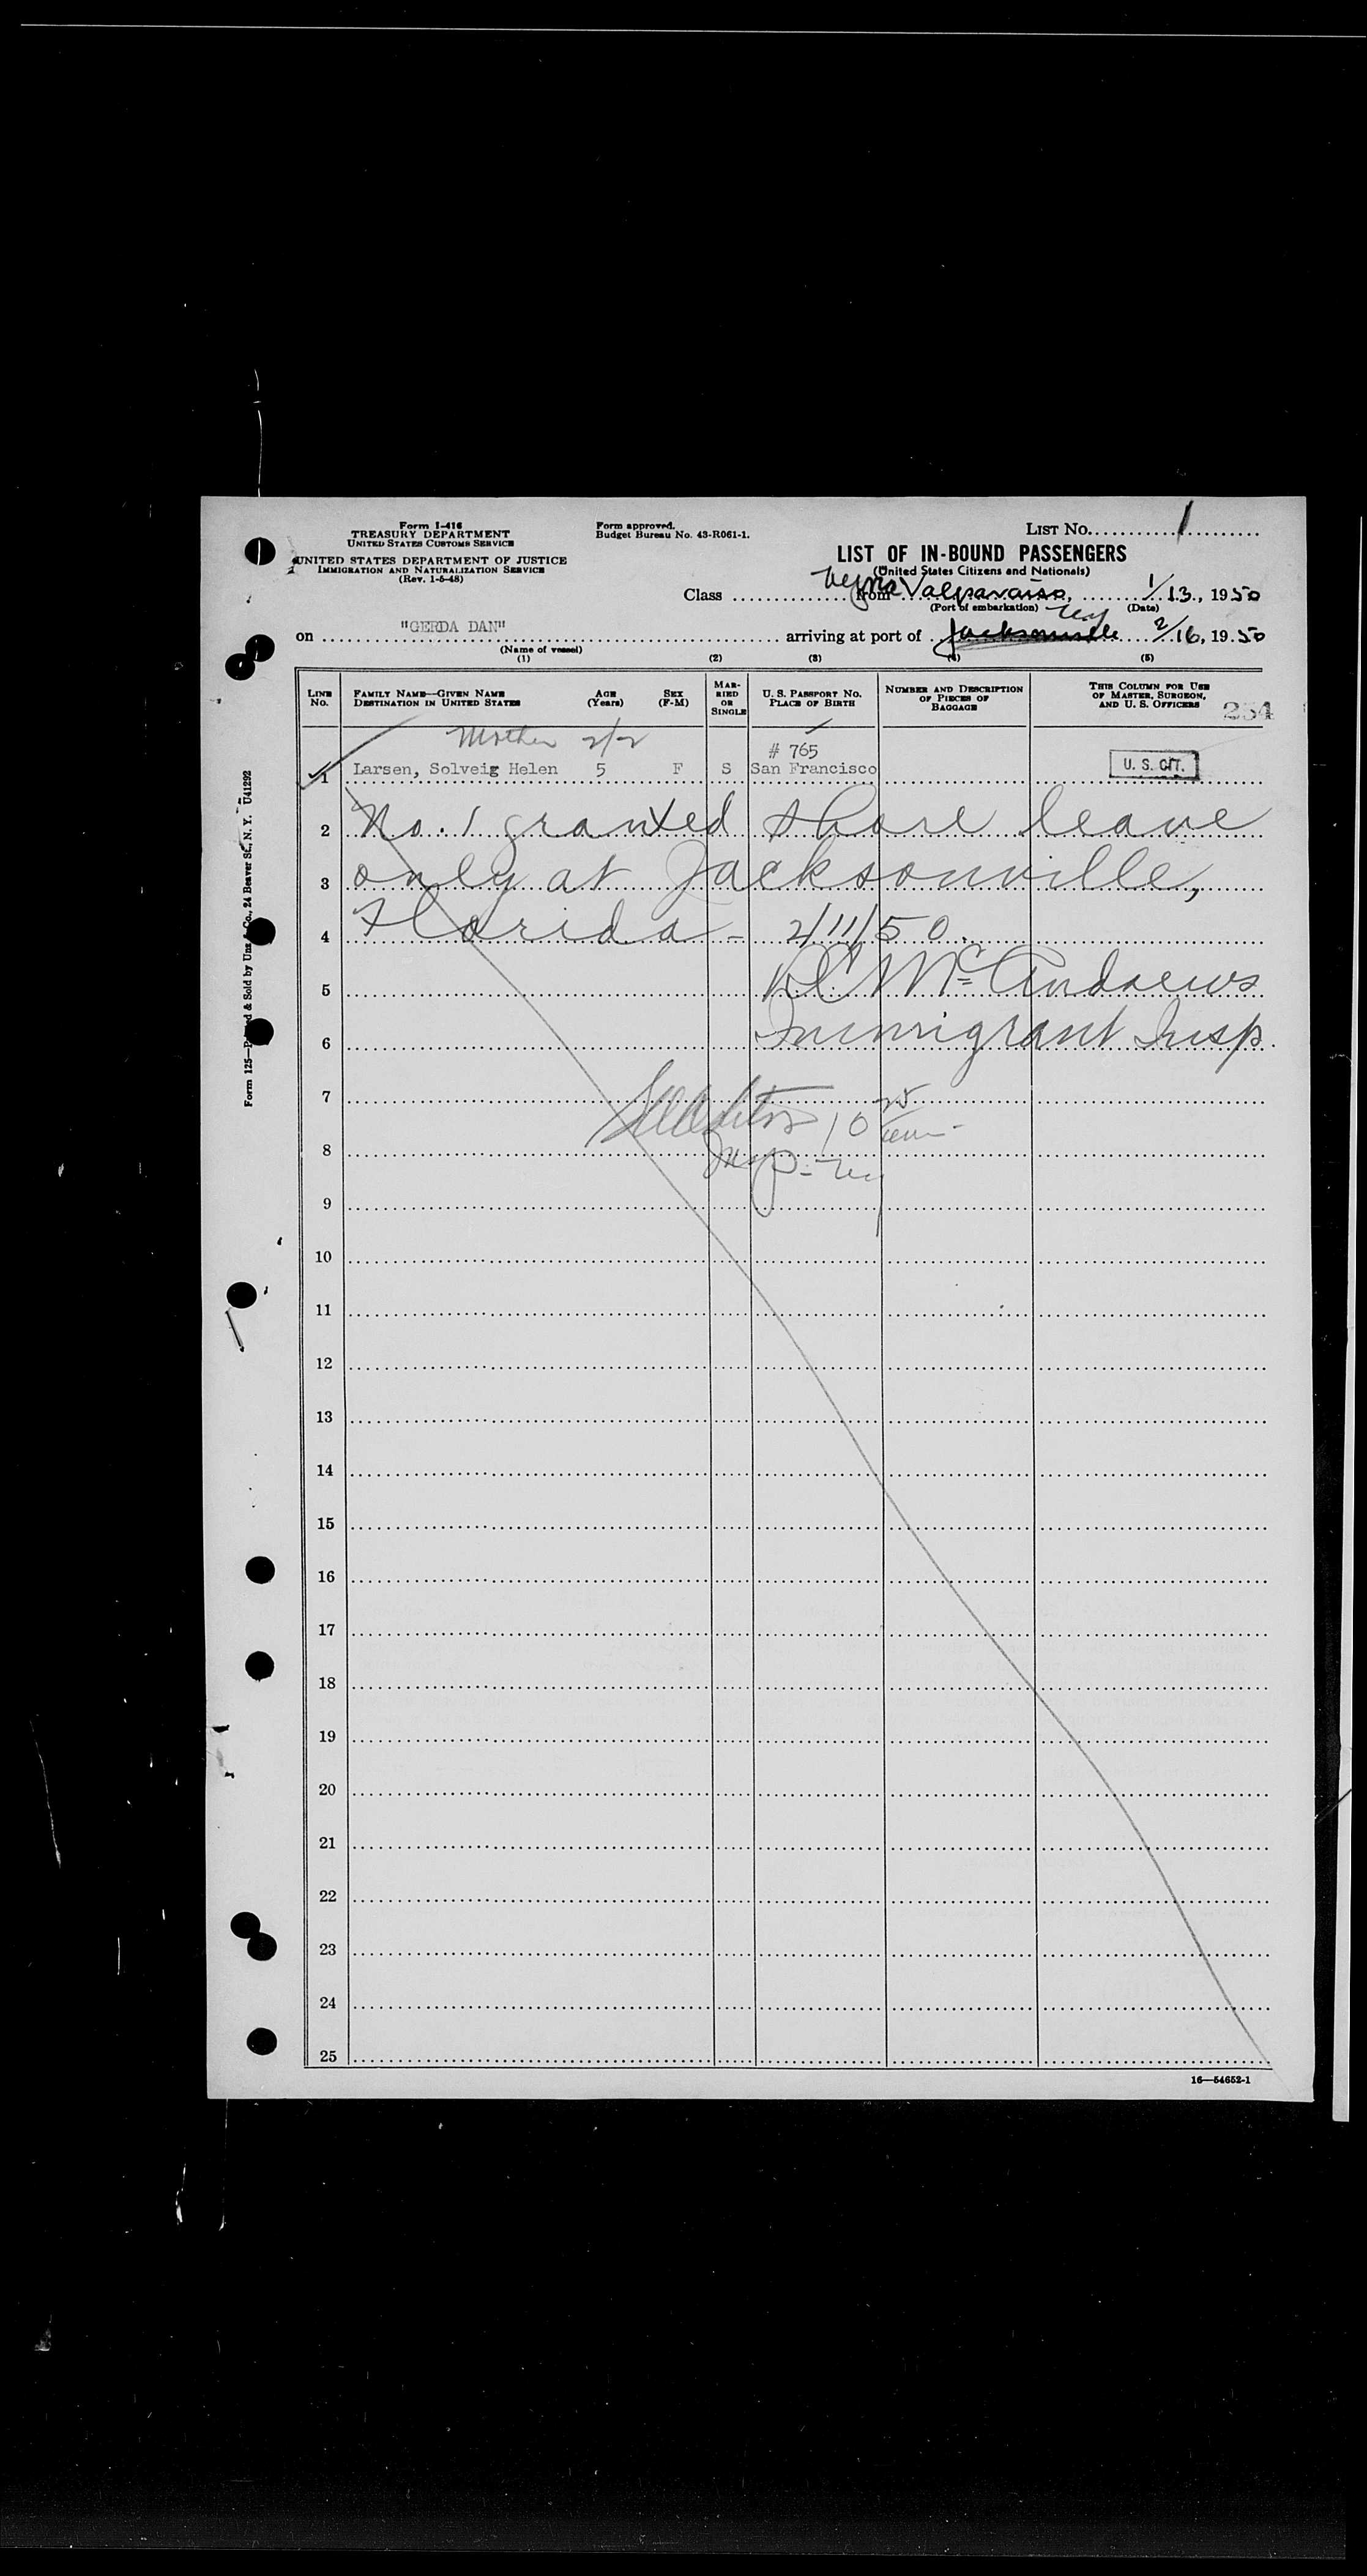 Form I-416
TREASURY DEPARTMENT
UNITED STATES CUSTOMS SERVICE
UNITED STATES DEPARTMENT OF JUSTICE
IMMIGRATION AND NATURALIZATION SERVICE
(Rev. 1-5-48)
Form approved.
Budget Bureau No. 43-R061-1.
LIST No. 1
LIST OF IN-BOUND PASSENGERS
(United States Citizens and Nationals)
Class from Valparaiso, 1/13, 1950
(Port of embarkation) (Date)
on "GERDA DAN" arriving at port of Jacksonville 2/16, 1950
(Name of vessel)
(1) (2) (3) (4) (5)
LINE No.
FAMILY NAME—GIVEN NAME
DESTINATION IN UNITED STATES
AGE (Years)
SEX (F-M)
MARRIED OR SINGLE
U. S. PASSPORT NO.
PLACE OF BIRTH
NUMBER AND DESCRIPTION OF PIECES OF BAGGAGE
THIS COLUMN FOR USE OF MASTER, SURGEON, AND U. S. OFFICERS
234
Mother 2/2 # 765
1 Larsen, Solveig Helen 5 F S San Francisco U. S. CIT.
2 No. 1 granted shore leave
3 only at Jacksonville,
4 Florida - 2/11/50.
5 McAndrews
6 Immigrant Insp.
7
8
Insp. - NY
9
10
11
12
13
14
15
16
17
18
19
20
21
22
23
24
25
16—54652-1
Form 125—Printed & Sold by Unz & Co., 24 Beaver St., N. Y. U41292